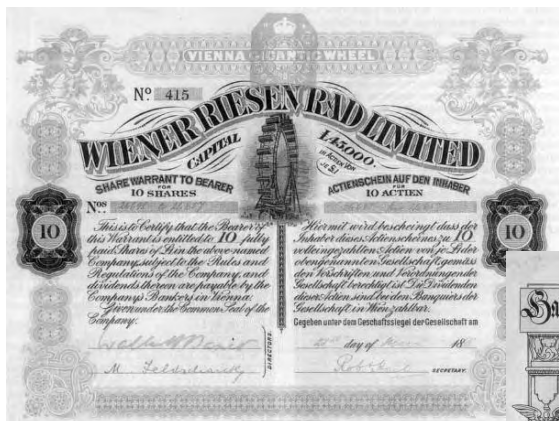 VIENNA GIGANTIC WHEEL
Nº 415
WIENER RIESEN RAD LIMITED
CAPITAL £45000.
IN ACTIEN VON
JE £1
SHARE WARRANT TO BEARER
FOR
10 SHARES
ACTIENSCHEIN AUF DEN INHABER
FÜR
10 ACTIEN
Nos
10
10
This is to Certify that the Bearer of
this Warrant is entitled to 10 fully
paid Shares of £1 in the above named
Company, subject to the Rules and
Regulations of the Company, and
dividends thereon are payable by the
Company's Bankers in Vienna.
Given under the Common Seal of the
Company.
DIRECTORS.
Hiermit wird bescheinigt dass der
Inhaber dieses Actienscheines zu 10
volleingezahlten Actien von je £1 der
obengenannten Gesellschaft gemäss
den Vorschriften und Verordnungen der
Gesellschaft berechtigt ist. Die Dividenden
dieser Actien sind bei den Banquiers der
Gesellschaft in Wien zahlbar.
Gegeben unter dem Geschäftssiegel der Gesellschaft am
day of
18
SECRETARY.